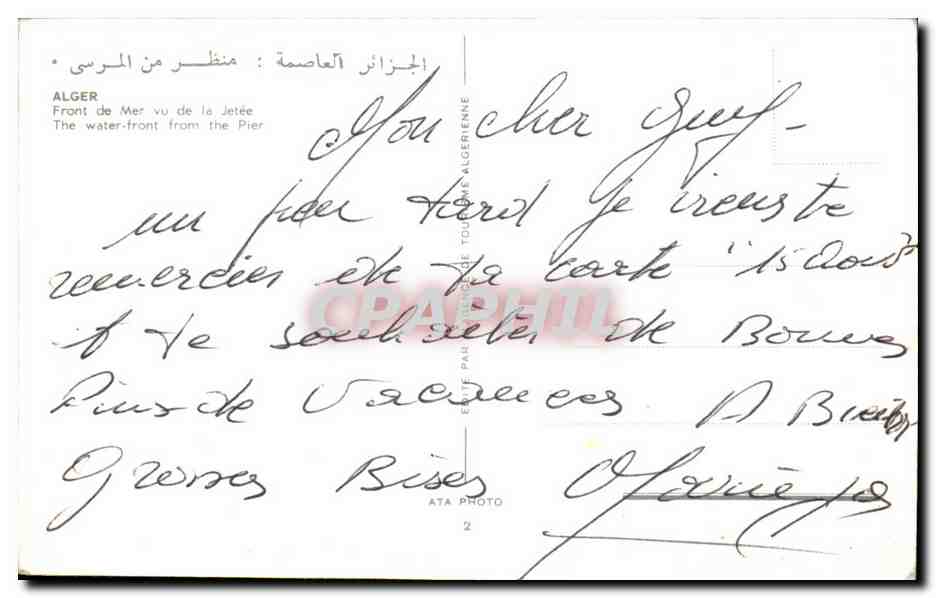 الجزائر العاصمة : منظر من المرسى •
ALGER
Front de Mer vu de la Jetée
The water-front from the Pier
Mon cher Guy -
un peu tard je viens te
remercier de ta carte "15 Aout"
et te souhaiter de Bonnes
Fins de Vacances A Bientôt
Grosses Bises
EDITE PAR L'AGENCE DE TOURISME ALGERIENNE
CPAPHIL
ATA PHOTO
2